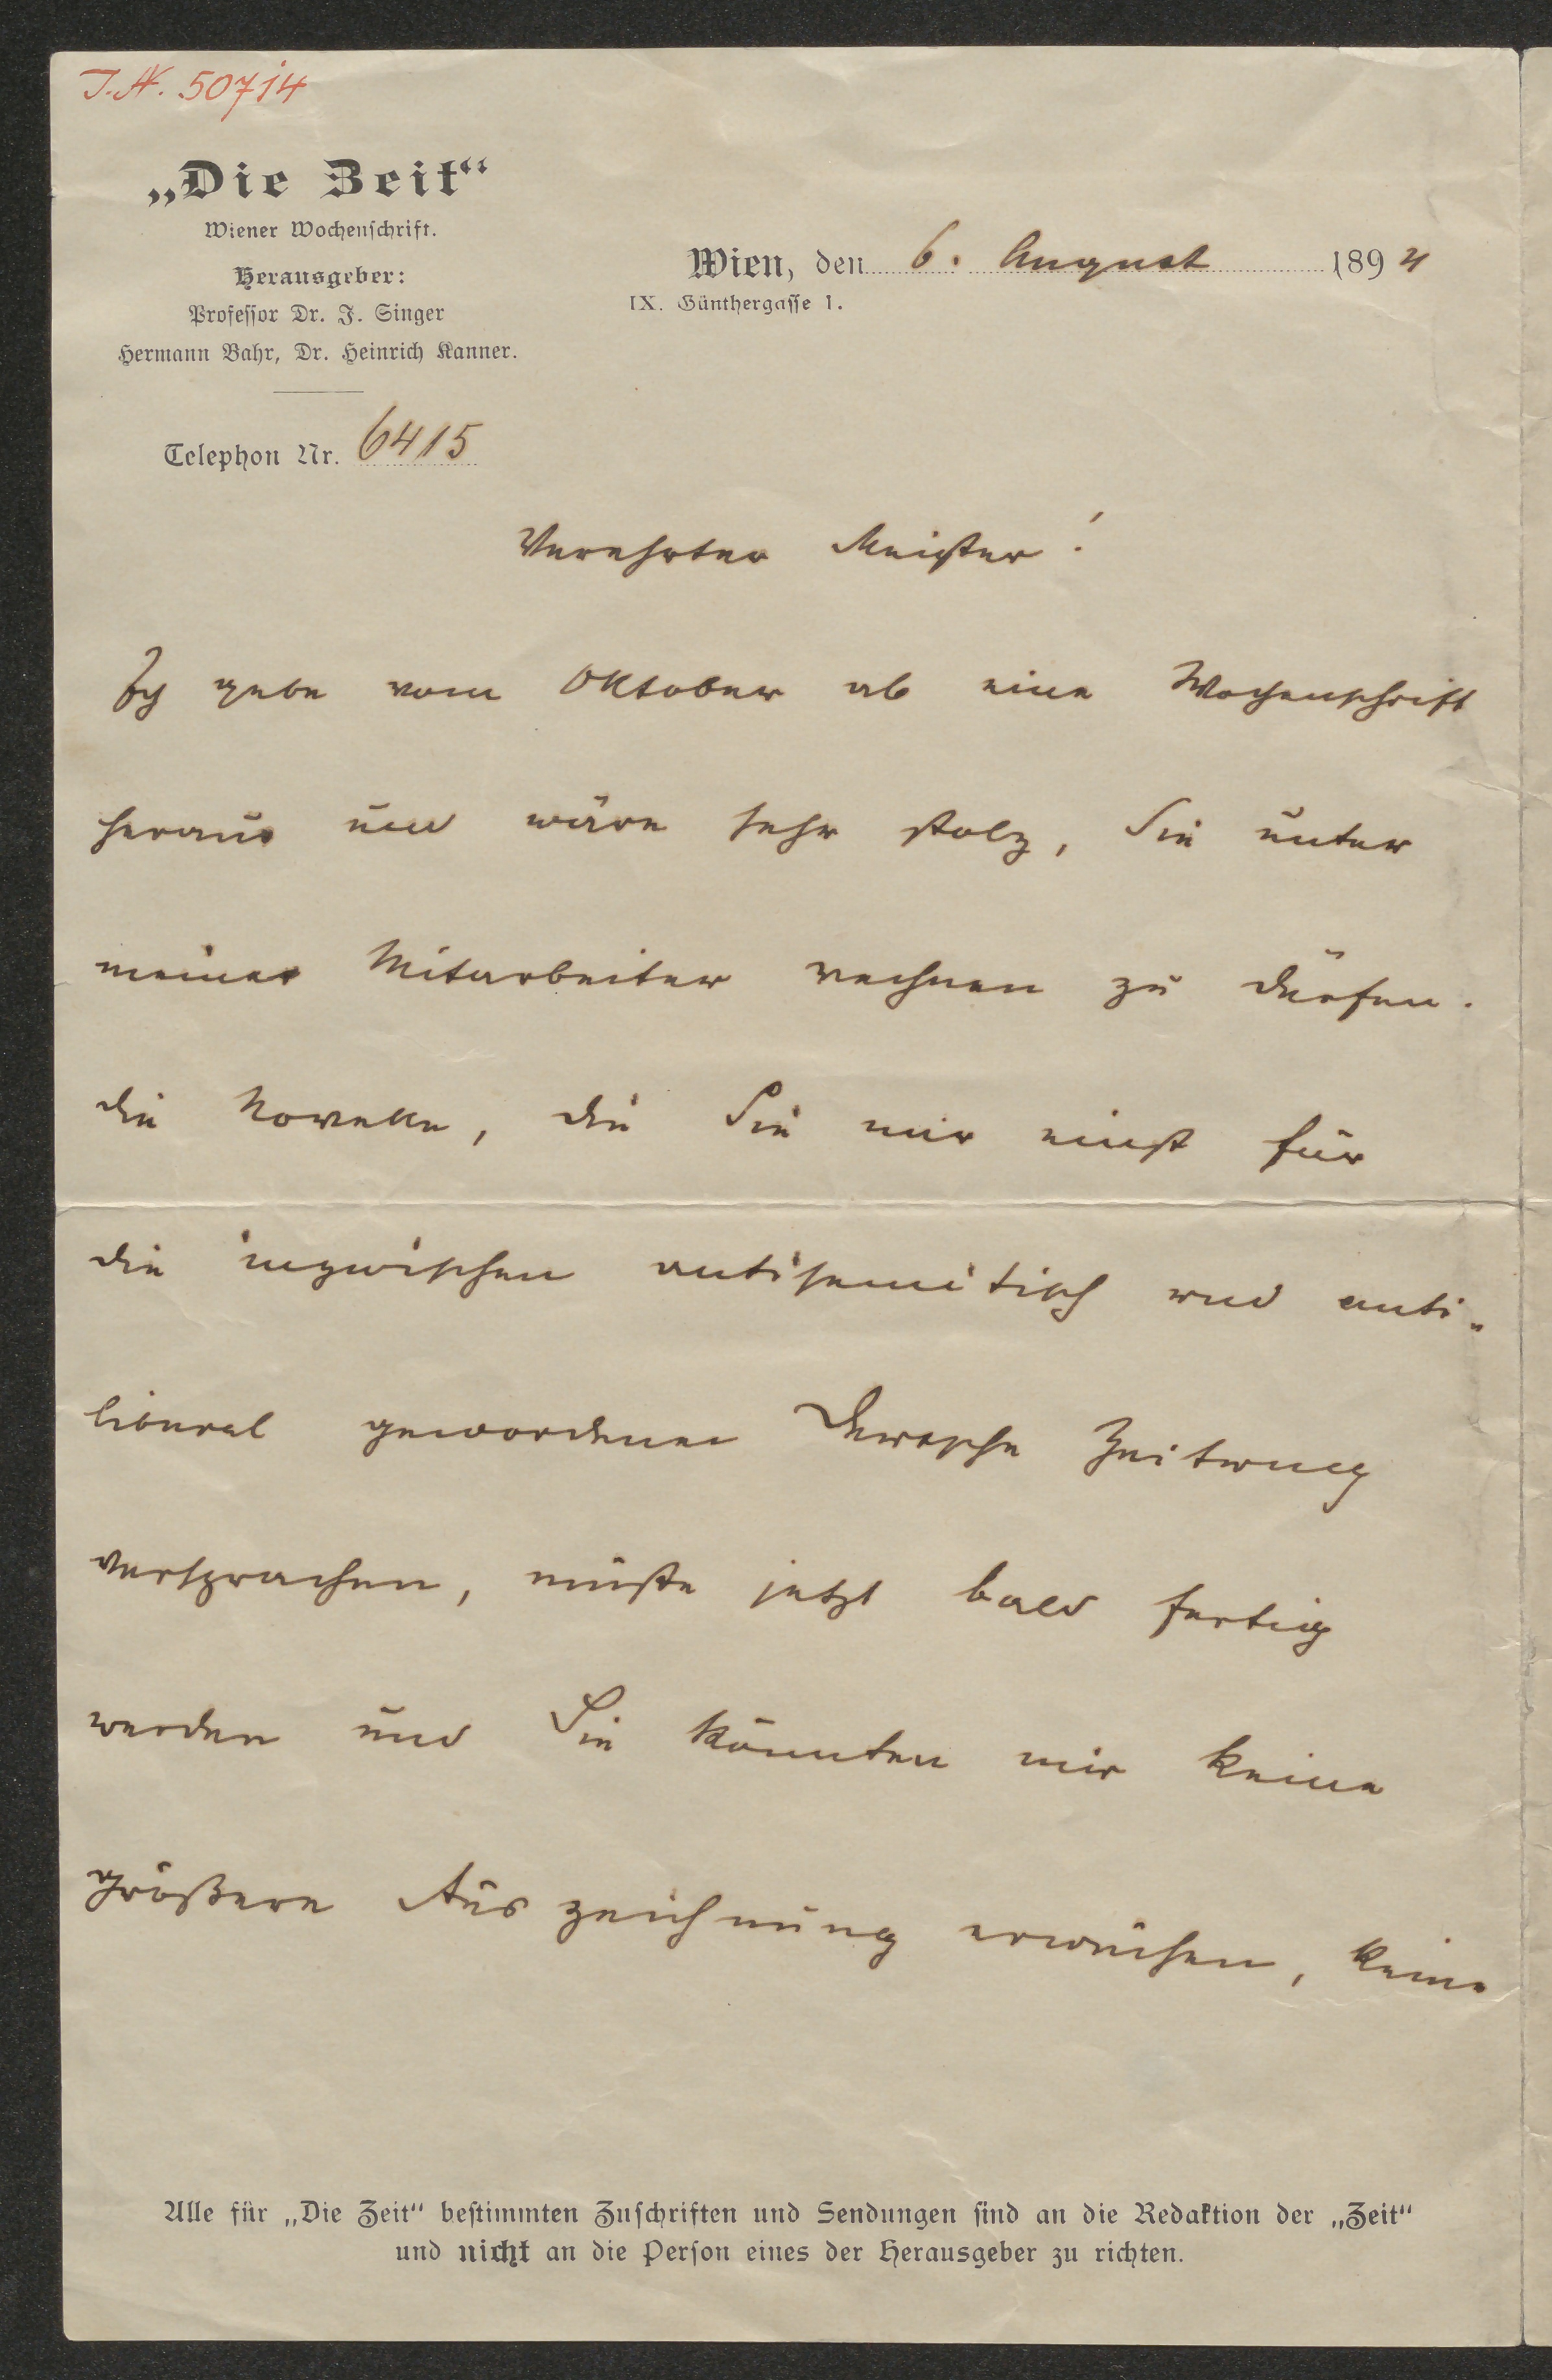 I.N. 50714
„Die Zeit“
Wiener Wochenschrift.
Herausgeber:
Professor Dr. J. Singer
Hermann Bahr, Dr. Heinrich Kanner.
Telephon Nr. 6415
Wien, den 6. August 1894
IX. Günthergasse 1.
Verehrter Meister!
Ich gebe vom Oktober ab eine Wochenschrift
heraus und wäre sehr stolz, Sie unter
meine Mitarbeiter rechnen zu dürfen.
Die Novelle, die Sie mir einst für
die inzwischen antisemitisch und anti-
liberal gewordene Deutsche Zeitung
versprachen, müßte jetzt bald fertig
werden und Sie könnten mir keine
größere Auszeichnung erweisen, keine
Alle für „Die Zeit“ bestimmten Zuschriften und Sendungen sind an die Redaktion der „Zeit“
und nicht an die Person eines der Herausgeber zu richten.